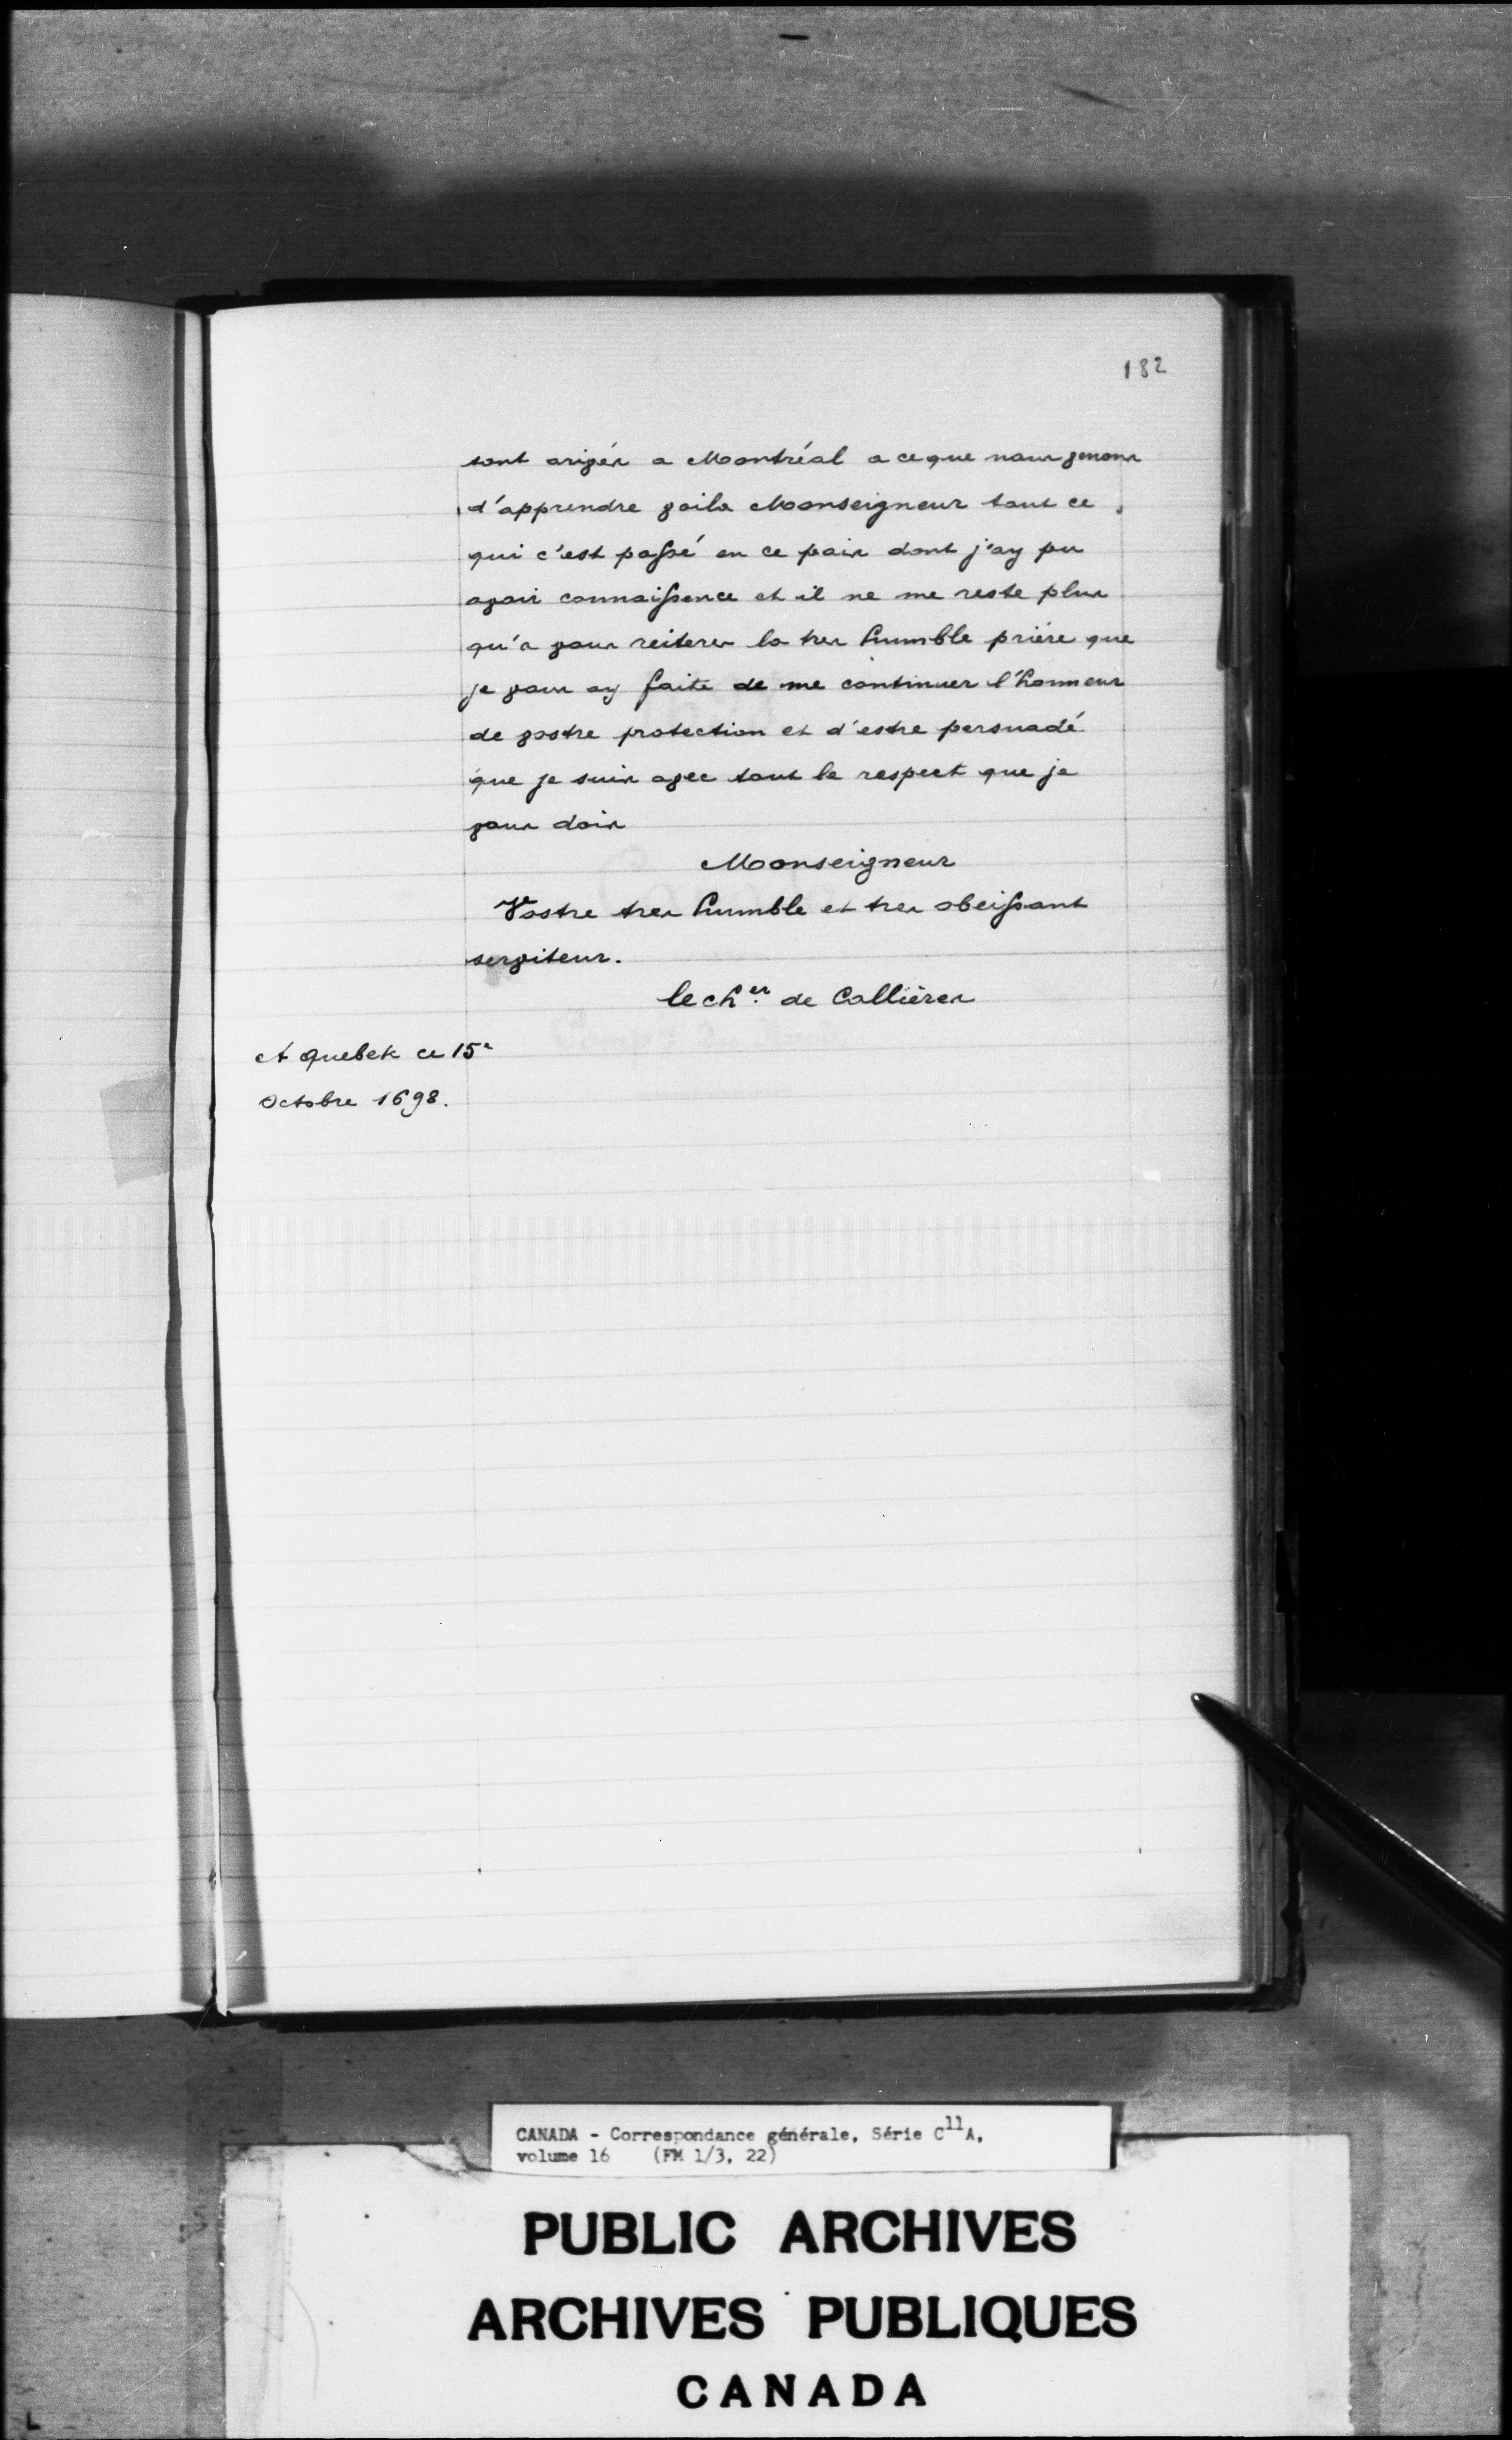 182
sont arivés a Montréal a ce que nous venons
d'apprendre voila Monseigneur tout ce
qui c'est passé en ce pais dont j'ay pu
avoir connaissence et il ne me reste plus
qu'a vous reiterer la tres humble priére que
je vous ay faite de me continuer l'honneur
de vostre protection et d'estre persuadé
que je suis avec tout le respect que je
vous dois
Monseigneur
Vostre tres humble et tres obeissant
serviteur.
le ch.er de Callières
A Quebek ce 15e
Octobre 1698.
CANADA - Correspondance générale, Série C11A,
volume 16 (FM 1/3, 22)
PUBLIC ARCHIVES
ARCHIVES PUBLIQUES
CANADA